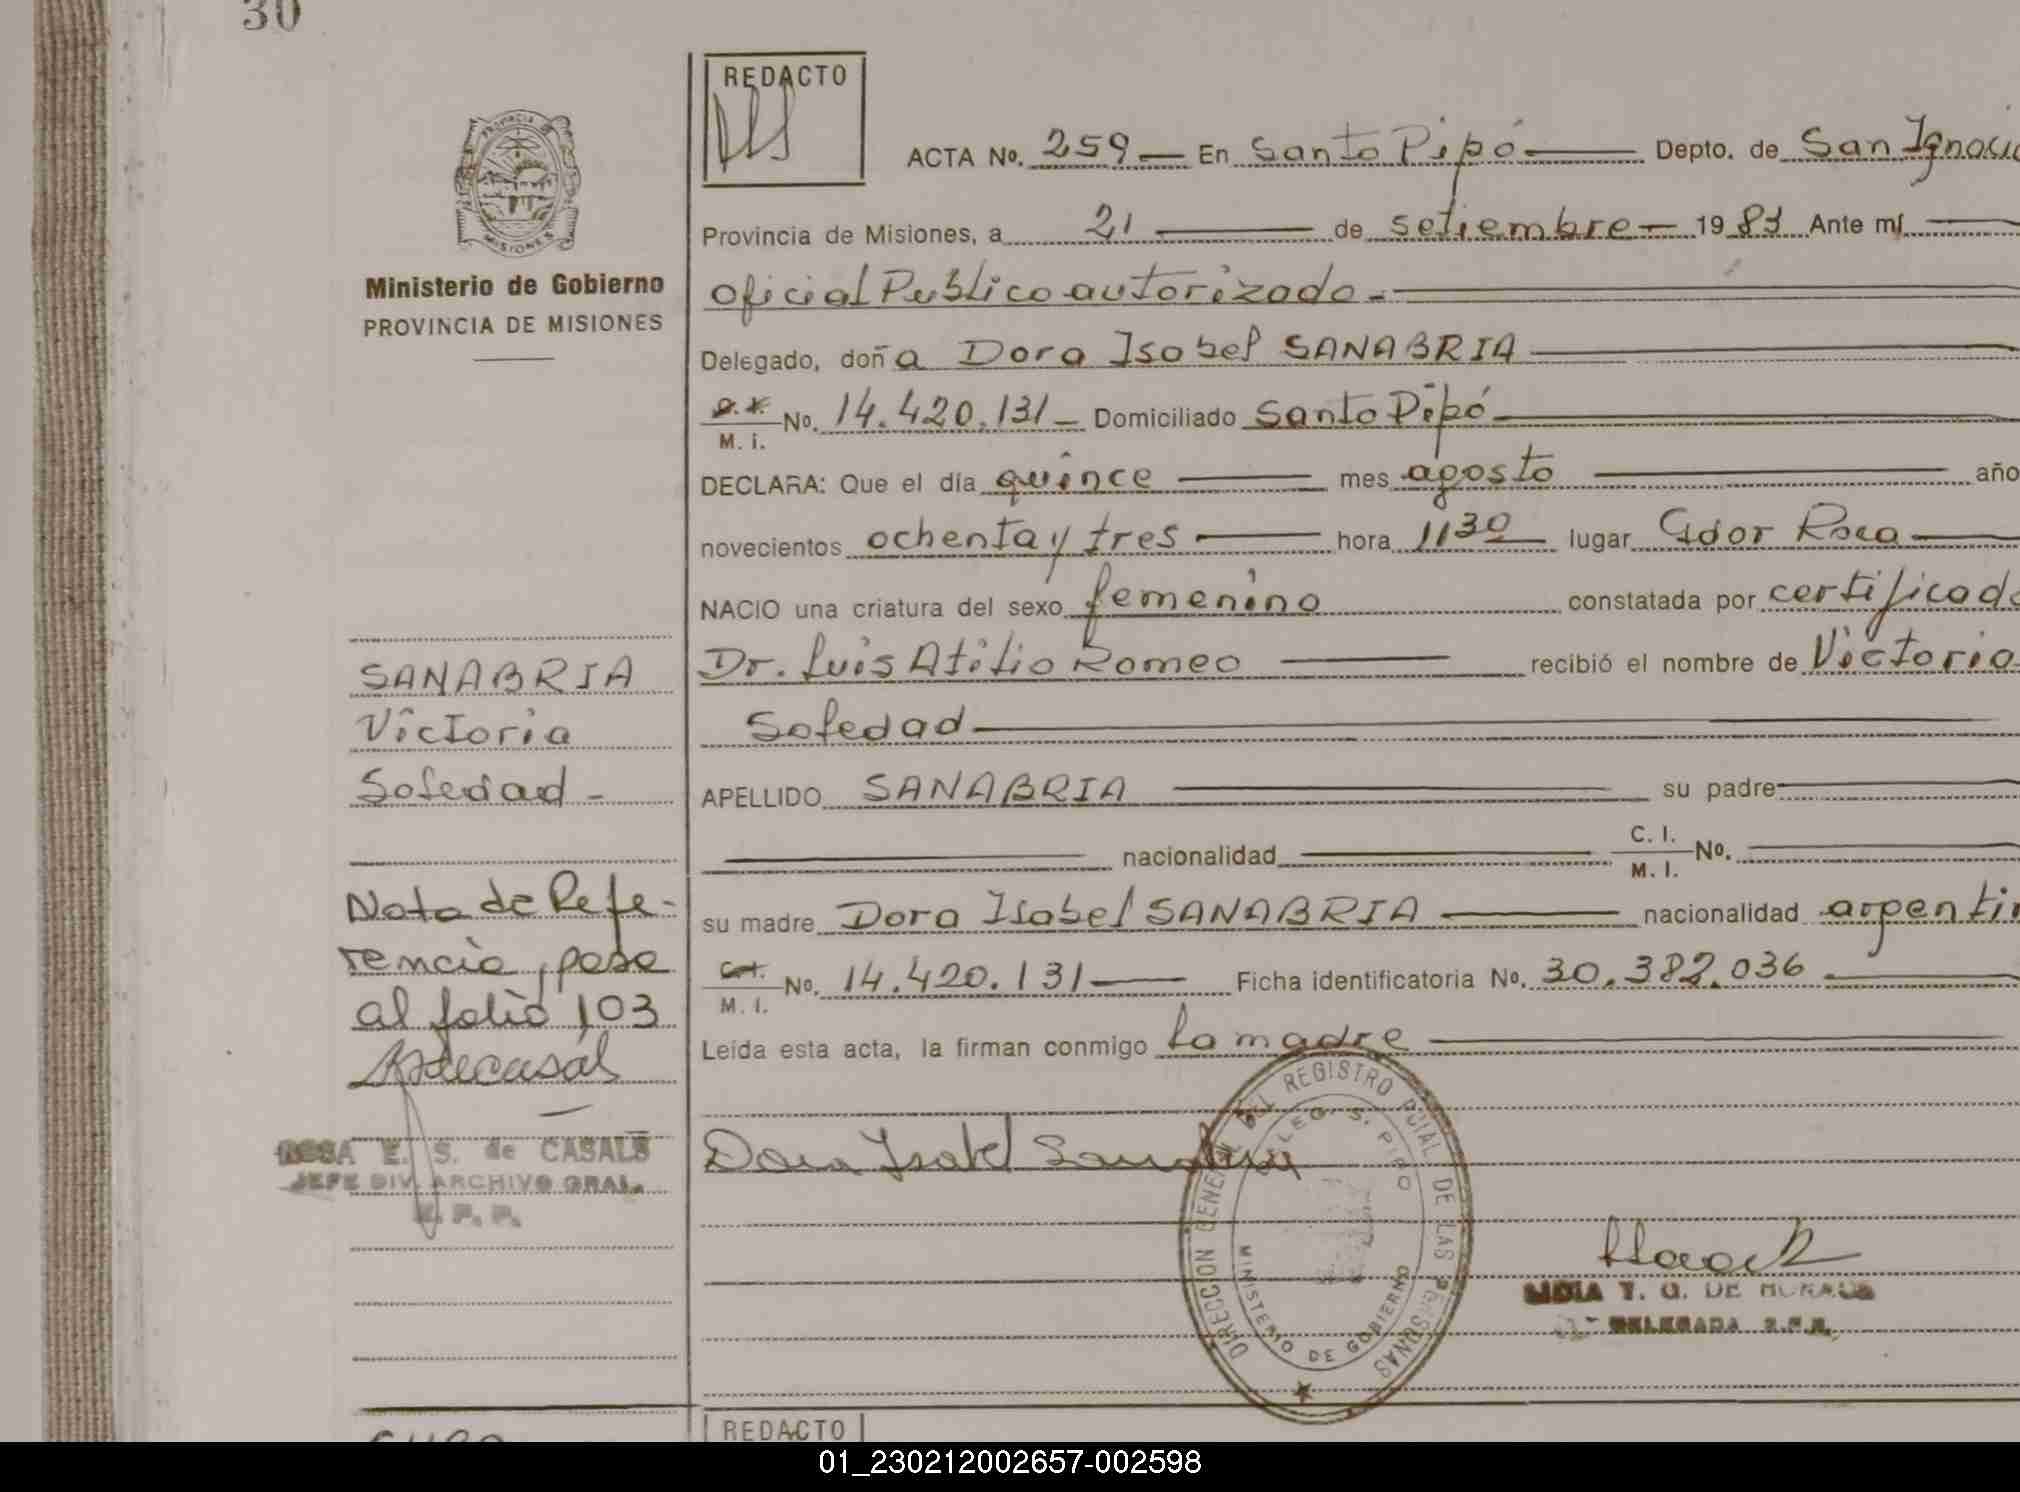 30
REDACTO
PROVINCIA DE
MISIONES
ACTA No. 259 En Santo Pipó Depto. de San Ignacio
Provincia de Misiones, a 21 de setiembre 1983 Ante mí
Ministerio de Gobierno
PROVINCIA DE MISIONES
oficial Publico autorizado.-
Delegado, doña Dora Isabel SANABRIA
M. i. No. 14.420.131 Domiciliado Santo Pipó
DECLARA: Que el día quince mes agosto año
novecientos ochenta y tres hora 11 30 lugar Gdor Roca
NACIO una criatura del sexo femenino constatada por certificado
Dr. Luis Atilio Romeo recibió el nombre de Victoria
Soledad
APELLIDO SANABRIA su padre
nacionalidad C. I. M. I. No.
su madre Dora Isabel SANABRIA nacionalidad argentin
M. I. No. 14.420.131 Ficha identificatoria No. 30.382.036
Leída esta acta, la firman conmigo la madre
SANABRIA
Victoria
Soledad -
Nota de Refe-
rencia, pasa
al folio 103
ROSA E. S. de CASALS
JEFE DIV. ARCHIVO GRAL.
R. P. P.
Dora Isabel Sanabria
DIRECCION GENERAL DEL REGISTRO PCIAL DE LAS PERSONAS
DELEG. S. PIPO
MINISTERIO DE GOBIERNO
LIDIA T. G. DE
DELEGADA R.P.P.
REDACTO
01_230212002657-002598